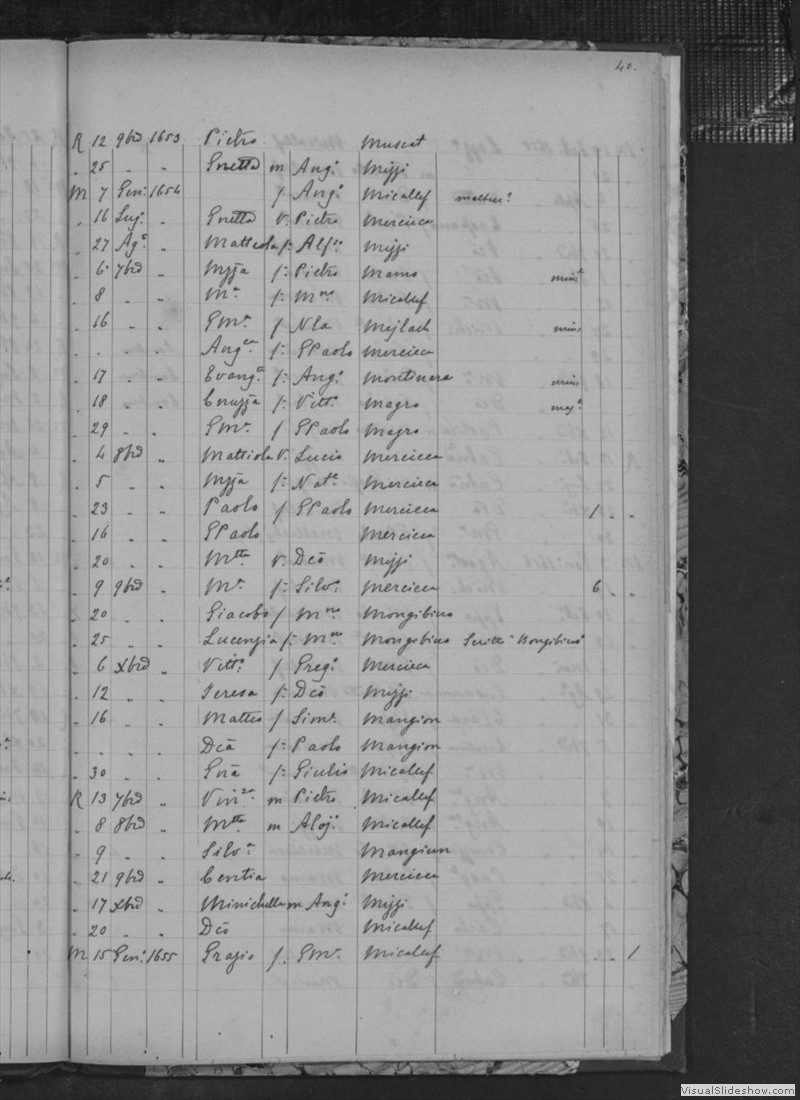 40.
R 12 9brē 1653 Pietro Muscat
. 25 . . Gnetta m Angº Mizzi
M 7 Gen: 1654 f Angº Micallef
. 16 Lugº . Gnetta v. Pietro Mercieca
. 27 Agº . Matteola f: Alfso Mizzi
. 6 7brē . Myza f: Pietro Mamo
. 8 . . Mª f: Mno Micallef
. 16 . . GMª f Nla Mejlach min
. . . . Angca f: GPaolo Mercieca
. 17 . . Evangª f: Angº Montinaro min
. 18 . . Cnuzza f: Vittº Magro
. 29 . . GMª f GPaolo Magro
. 4 8brē . Mattiola v. Lucio Mercieca
. 5 . . Myza f: Natº Mercieca
. 23 . . Paolo f GPaolo Mercieca 1 . .
. 16 . . GPaolo Mercieca
. 20 . . Mtta v. Dcō Mizzi
. 9 9brē . Mª f: Silvº Mercieca 6 . .
. 20 . . Giacobo f Mno Mongibino
. 25 . . Lucenzia f: Mno Mongibino Scritti "Bongibino"
. 6 xbrē . Vittº f Gregº Mercieca
. 12 . . Teresa f: Dcō Mizzi
. 16 . . Matteo f Simº Mangion
. . . . Dcā f: Paolo Mangion
. 30 . . Gnā f: Giulio Micallef
R 13 7brē . Vinza m Pietro Micallef
. 8 8brē . Mtta m Alojº Micallef
. 9 . . Silvª Mangion
. 21 9brē . Mercieca
. 17 xbrē . Minichella m Angº Mizzi
. 20 . . Dcō Micallef
M 15 Gen: 1655 Grazio f. GMª Micallef . . 1
VisualSlideshow.com